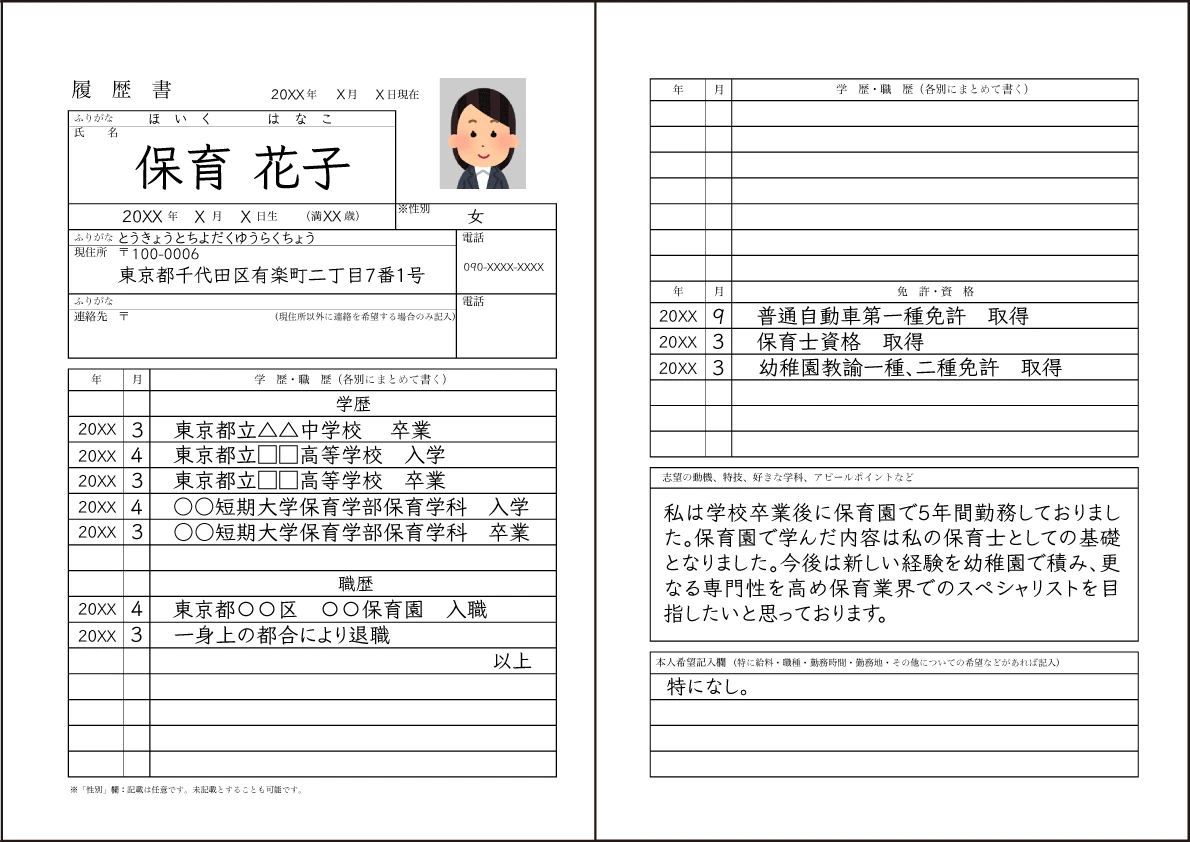 履 歴 書
20XX年 X月 X日現在
ふりがな ほ い く は な こ
氏 名
保育 花子
20XX 年 X 月 X 日生 （満XX 歳）
※性別 女
ふりがな とうきょうとちよだくゆうらくちょう
現住所 〒100-0006
東京都千代田区有楽町二丁目7番1号
電話
090-XXXX-XXXX
ふりがな
連絡先 〒 （現住所以外に連絡を希望する場合のみ記入）
電話
年 月 学 歴・職 歴（各別にまとめて書く）
学歴
20XX 3 東京都立△△中学校 卒業
20XX 4 東京都立□□高等学校 入学
20XX 3 東京都立□□高等学校 卒業
20XX 4 〇〇短期大学保育学部保育学科 入学
20XX 3 〇〇短期大学保育学部保育学科 卒業
職歴
20XX 4 東京都〇〇区 〇〇保育園 入職
20XX 3 一身上の都合により退職
以上
※「性別」欄：記載は任意です。未記載とすることも可能です。
年 月 学 歴・職 歴（各別にまとめて書く）
年 月 免 許・資 格
20XX 9 普通自動車第一種免許 取得
20XX 3 保育士資格 取得
20XX 3 幼稚園教諭一種、二種免許 取得
志望の動機、特技、好きな学科、アピールポイントなど
私は学校卒業後に保育園で5年間勤務しておりまし
た。保育園で学んだ内容は私の保育士としての基礎
となりました。今後は新しい経験を幼稚園で積み、更
なる専門性を高め保育業界でのスペシャリストを目
指したいと思っております。
本人希望記入欄 （特に給料・職種・勤務時間・勤務地・その他についての希望などがあれば記入）
特になし。